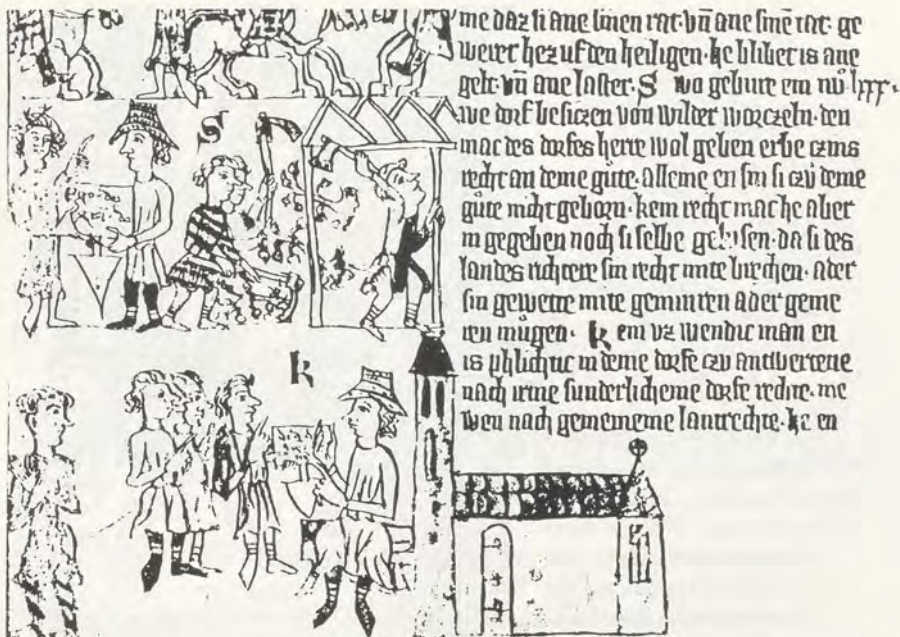 me daz si ane sinen rat. vn̄ ane sinē rat. ge
weret hez uf den heiligen. he blibet is ane
gelt. vn̄ ane laster. S wo gebure ein nu lxxx.
we dorf besiczen von wilder worczeln. den
mac des dorfes herre wol geben erbe czins
recht an deme gute. alleine en sin si czu deme
gute nicht geborn. kein recht mac he aber
in gegeben noch si selbe da si des
landes richtere sin recht mite brechen. ader
sin gewette mite geminren ader geme
ren mugen. k ein vz wendic man en
is phlichtic in deme dorfe czu antwertene
nach irme sunderlicheme dorf rechte. me
wen nach gemeineme lantrechte. he en
S
k